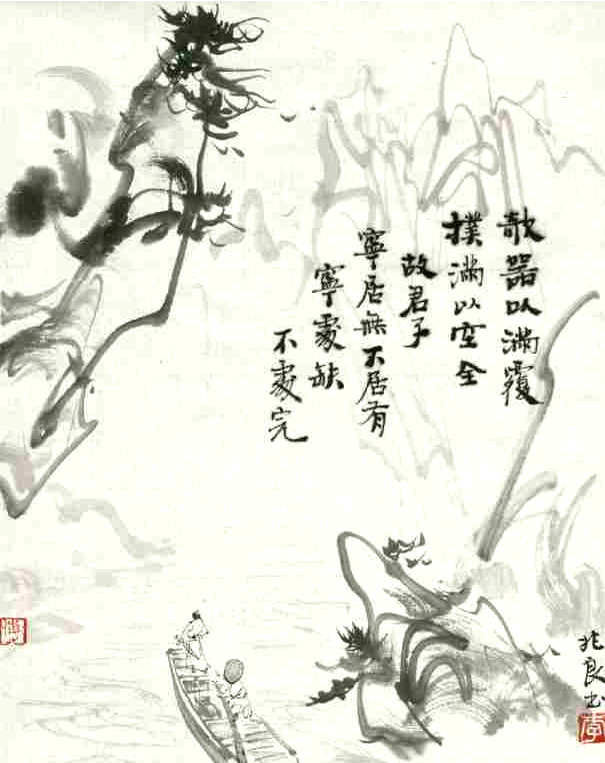 欹器以滿覆
撲滿以空全
故君子
寧居無不居有
寧處缺
不處完
兆良书
李